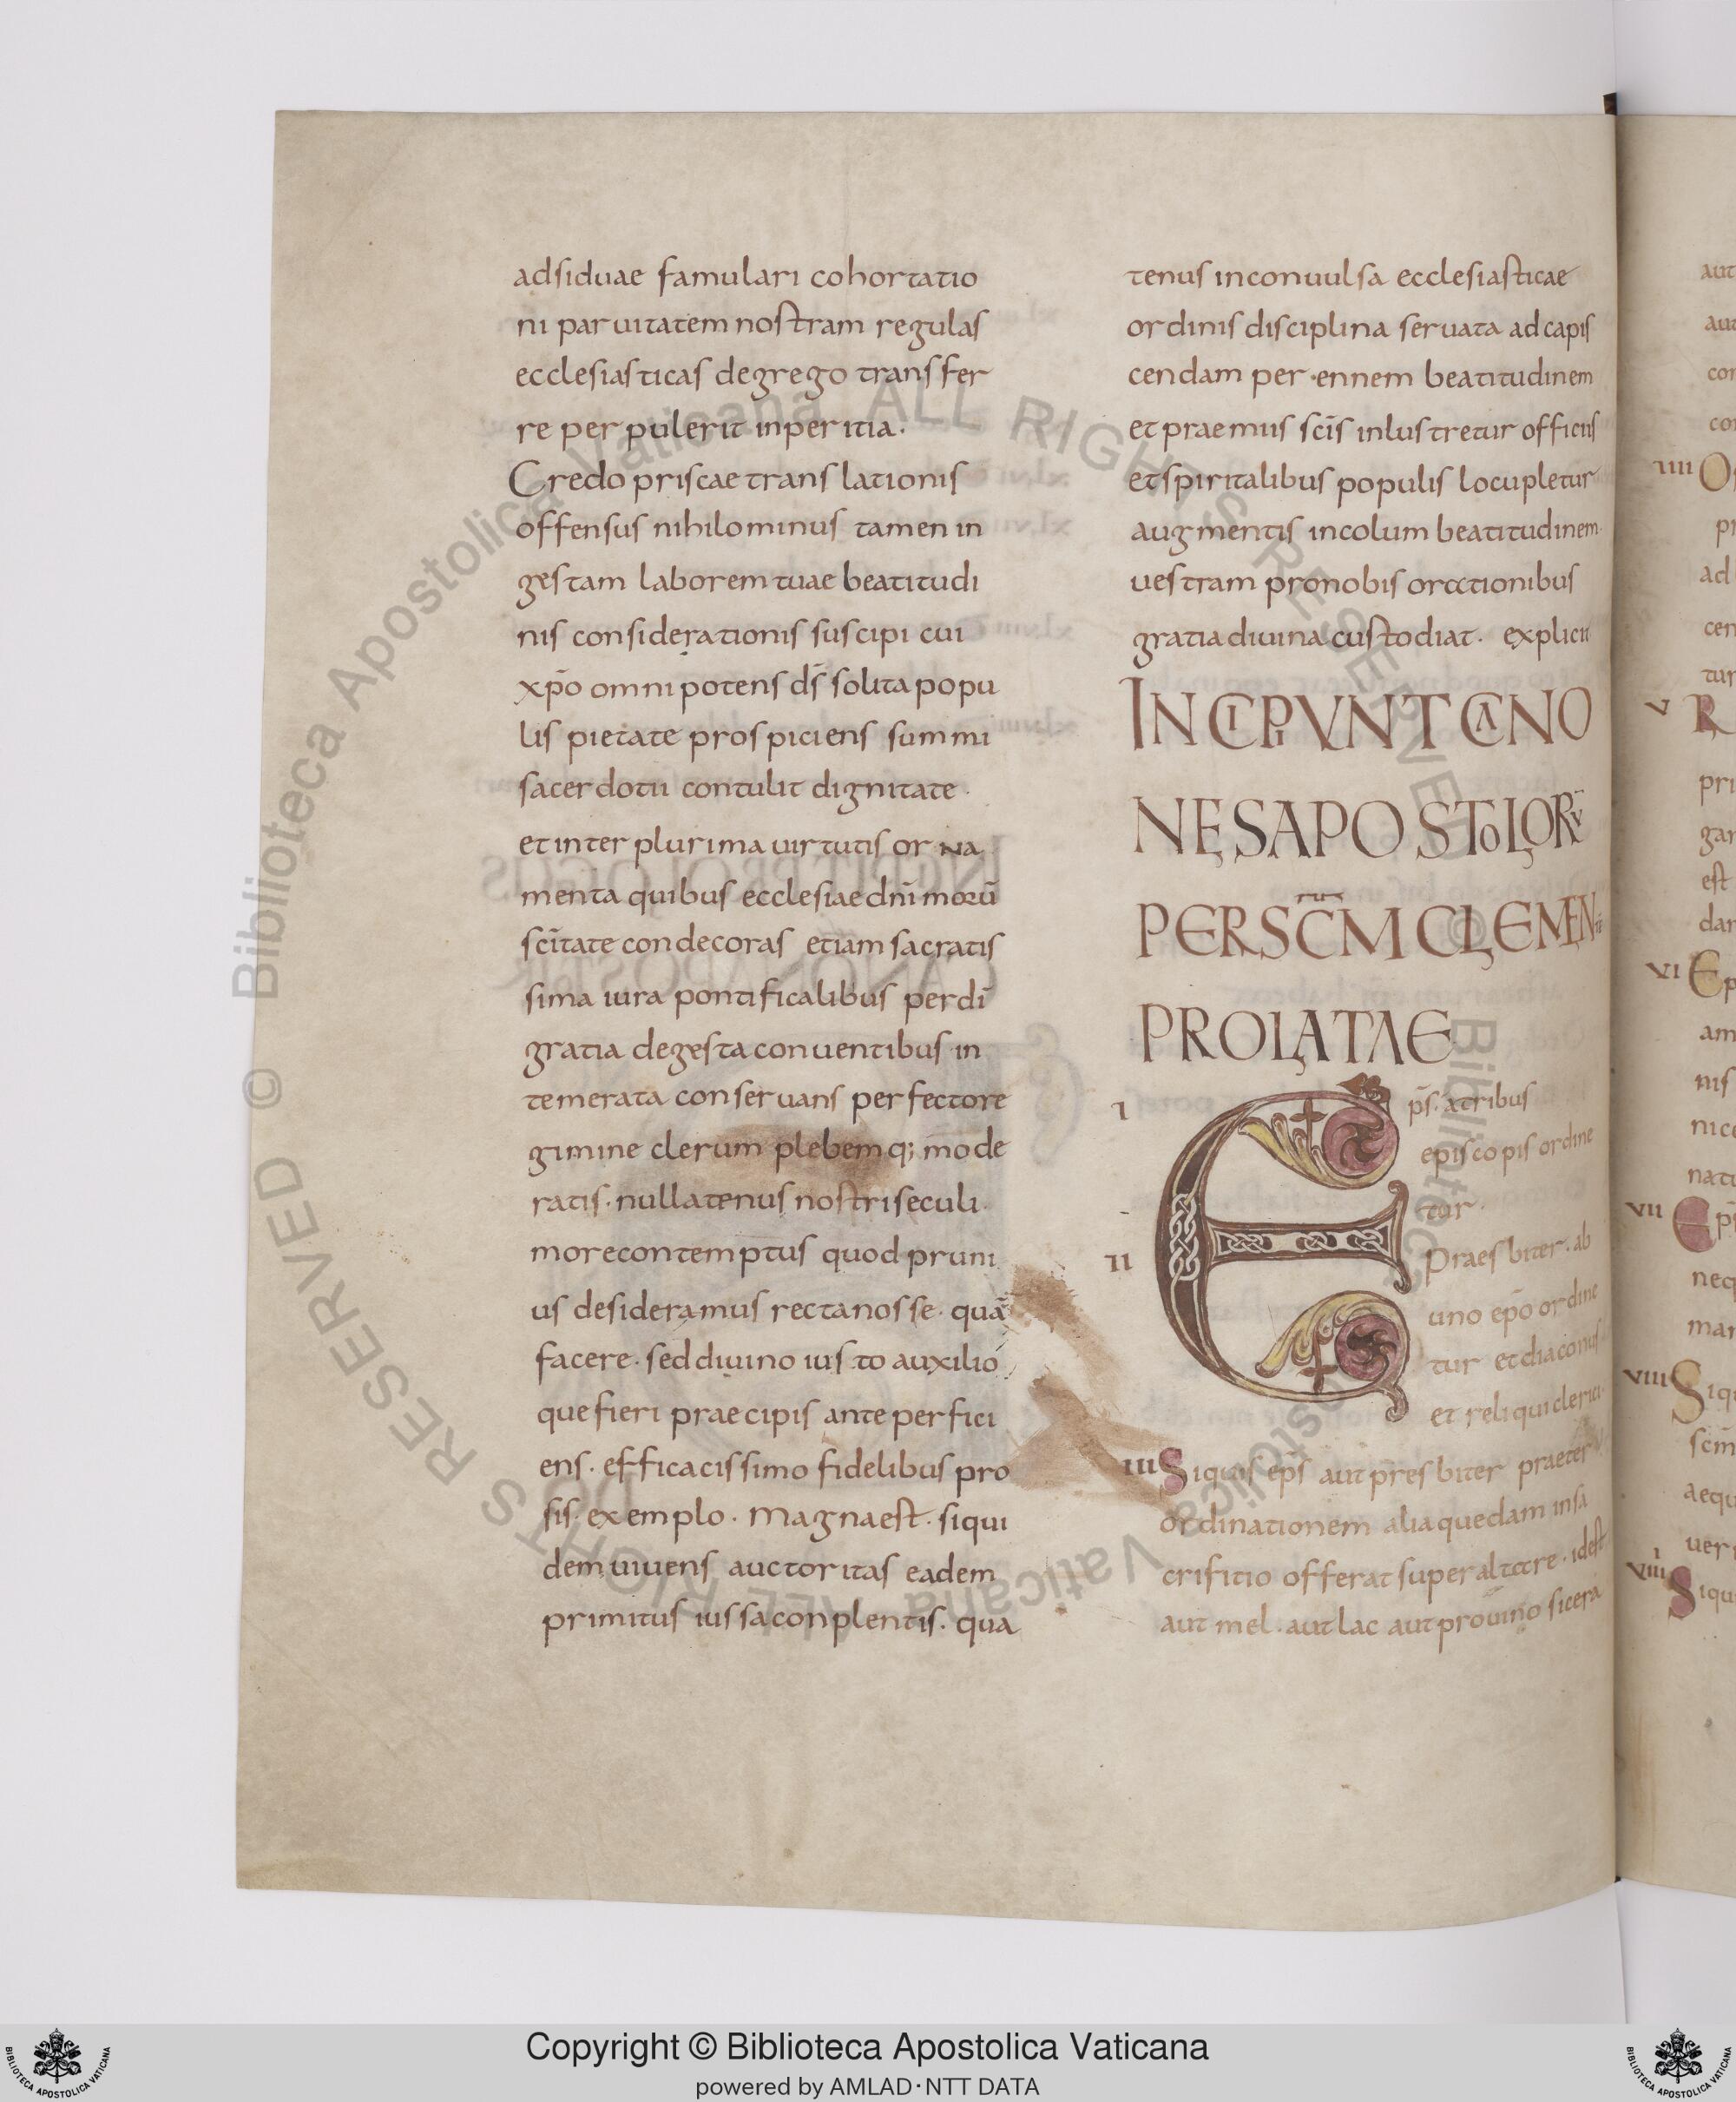 adsiduae famulari cohortatio
ni paruitatem nostram regulas
ecclesiasticas degrego transfer
re perpulerit inperitia.
Credo priscae translationis
offensus nihilominus tamen in
gestam laborem tuae beatitudi
nis considerationis suscipi cui
xp̄o omnipotens d̄s solita popu
lis pietate prospiciens summi
sacerdotii contulit dignitate.
et inter plurima uirtutis orna
menta quibus ecclesiae dn̄i morū
sc̄itate condecoras etiam sacratis
sima iura pontificalibus per dī
gratia degesta conuentibus in
temerata conseruans perfecto re
gimine clerum plebemq; mode
ratis. nullatenus nostri seculi.
more contemptus quod pruni
us desideramus recta nosse. quā
facere. sed diuino iusto auxilio
que fieri praecipis ante perfici
ens. efficacissimo fidelibus pro
sis. exemplo. Magna est. siqui
dem uiuens auctoritas eadem
primitus iussa conplentis. qua
tenus inconuulsa ecclesiasticae
ordinis disciplina seruata ad capis
cendam per ennem beatitudinem
et praemiis sc̄is inlustretur officiis
et spiritalibus populis locupletur
augmentis incolum beatitudinem.
uestram pro nobis orationibus
gratia diuina custodiat. explicit
INCIPIVNT CANO
NES APOSTOLORV̄
PER SC̄M CLEMEN
PROLATAE
I E ps̄. a tribus
episcopis ordine
tur.
II Praesbiter. ab
uno ep̄o ordine
tur et diaconus
et reliqui clerici.
III Siquis ep̄s aut presbiter praeter
ordinationem alia quedam in sa
crifitio offerat super altare. id est
aut mel. aut lac aut pro uino sicera
IIII O
V R
VI Ep
VII Ep
VIII Siq
VIIII Siqu
© Biblioteca Apostolica Vaticana ALL RIGHTS RESERVED
© Biblioteca Apostolica Vaticana ALL RIGHTS RESERVED
Copyright © Biblioteca Apostolica Vaticana
powered by AMLAD·NTT DATA
BIBLIOTECA APOSTOLICA VATICANA
BIBLIOTECA APOSTOLICA VATICANA